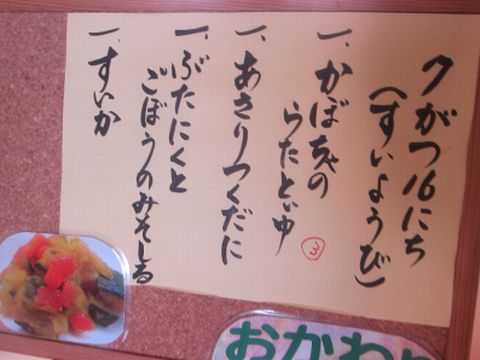 7がつ16にち
(すいようび)
一、かぼちゃの
らたとぃゆ
③
一、あさりつくだに
一、ぶたにくと
ごぼうのみそしる
一、すいか
おかわ